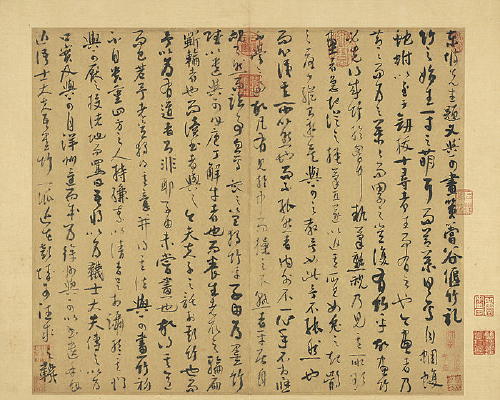 東坡先生題文與可畫篔簹谷偃竹記
竹之始生一寸之萌耳而節葉具焉自蜩腹
蛇蚹以至於劍拔十尋者生而有之也今畫者乃
節節而為之葉葉而累之豈復有竹乎故畫竹
必先得成竹於胸中執筆熟視乃見其所欲
畫者急起從之振筆直遂以追其所見如兔起鶻
落少縱則逝矣與可之教予如此予不能然也
而心識其所以然而不能然者內外不一心手不相應
不學之過也故凡有見於中而操之不熟者平居自
視了然而臨事忽焉喪之豈獨竹乎子由為墨竹
賦以遺與可曰庖丁解牛者也而養生者取之輪扁
斲輪者也而讀書者與之今夫夫子之託於斯竹也而
予以為有道者則非耶子由未嘗畫也故得其意
而已若予者豈獨得其意并得其法與可畫竹初
不自貴重四方之人持縑素以請者足相躡於其門
與可厭之投諸地而罵曰吾將以為襪士大夫傳之以為
口實及與可自洋州還而余為徐州與可以書遺余曰
近語士大夫吾墨竹一派近在彭城可往求之襪